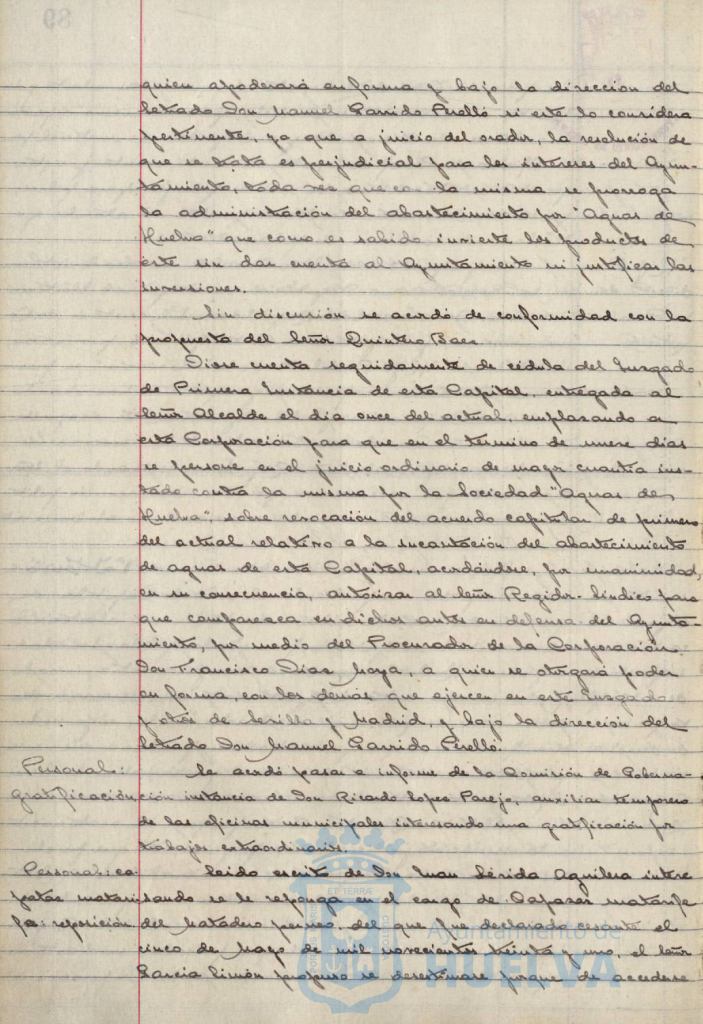 quien apoderará en forma y bajo la direccion del
letrado Don Manuel Garrido Perelló si este lo considera
pertinente, ya que a juicio del orador, la resolución de
que se trata es perjudicial para los intereses del Ayun-
tamiento, toda vez que con la misma se prorroga
la administración del abastecimiento por "Aguas de
Huelva" que como es sabido invierte los productos de
este sin dar cuenta al Ayuntamiento ni justificar las
inversiones.
Sin discusión se acordó de conformidad con la
propuesta del Señor Quintero Baez
Diose cuenta seguidamente de cédula del Juzgado
de Primera Instancia de esta Capital, entregada al
Señor Alcalde el dia once del actual, emplazando a
esta Corporación para que en el termino de nueve dias
se persone en el juicio ordinario de mayor cuantia ins-
tado contra la misma por la Sociedad "Aguas de
Huelva", sobre revocación del acuerdo capitular de primero
del actual relativo a la incautación del abastecimiento
de aguas de esta Capital, acordándose, por unanimidad,
en su consecuencia, autorizar al Señor Regidor-Sindico para
que comparezca en dichos autos en defensa del Ayunta-
miento, por medio del Procurador de la Corporación
Don Francisco Diaz Moya, a quien se otorgará poder
en forma, con los demás que ejercen en este Juzgado
y otros de Sevilla y Madrid, y bajo la dirección del
letrado Don Manuel Garrido Perelló.
Personal: Se acordó pasar a informe de la Comisión de Goberna-
gratificación ción instancia de Don Ricardo Lopez Parejo, auxiliar temporero
de las oficinas municipales interesando una gratificación por
trabajos extraordinarios.
Personal: ca Leido escrito de Don Juan Lérida Aguilera intere
pataz matari sando se le reponga en el cargo de Capataz matarife
fe: reposición. del Matadero periuo, del que fue declarado cesante el
cinco de Mayo de mil novecientos treinta y uno, el Señor
Garcia Limón propuso se desestimase porque de accederse
ET TERRÆ
Ayuntamiento de
HUELVA